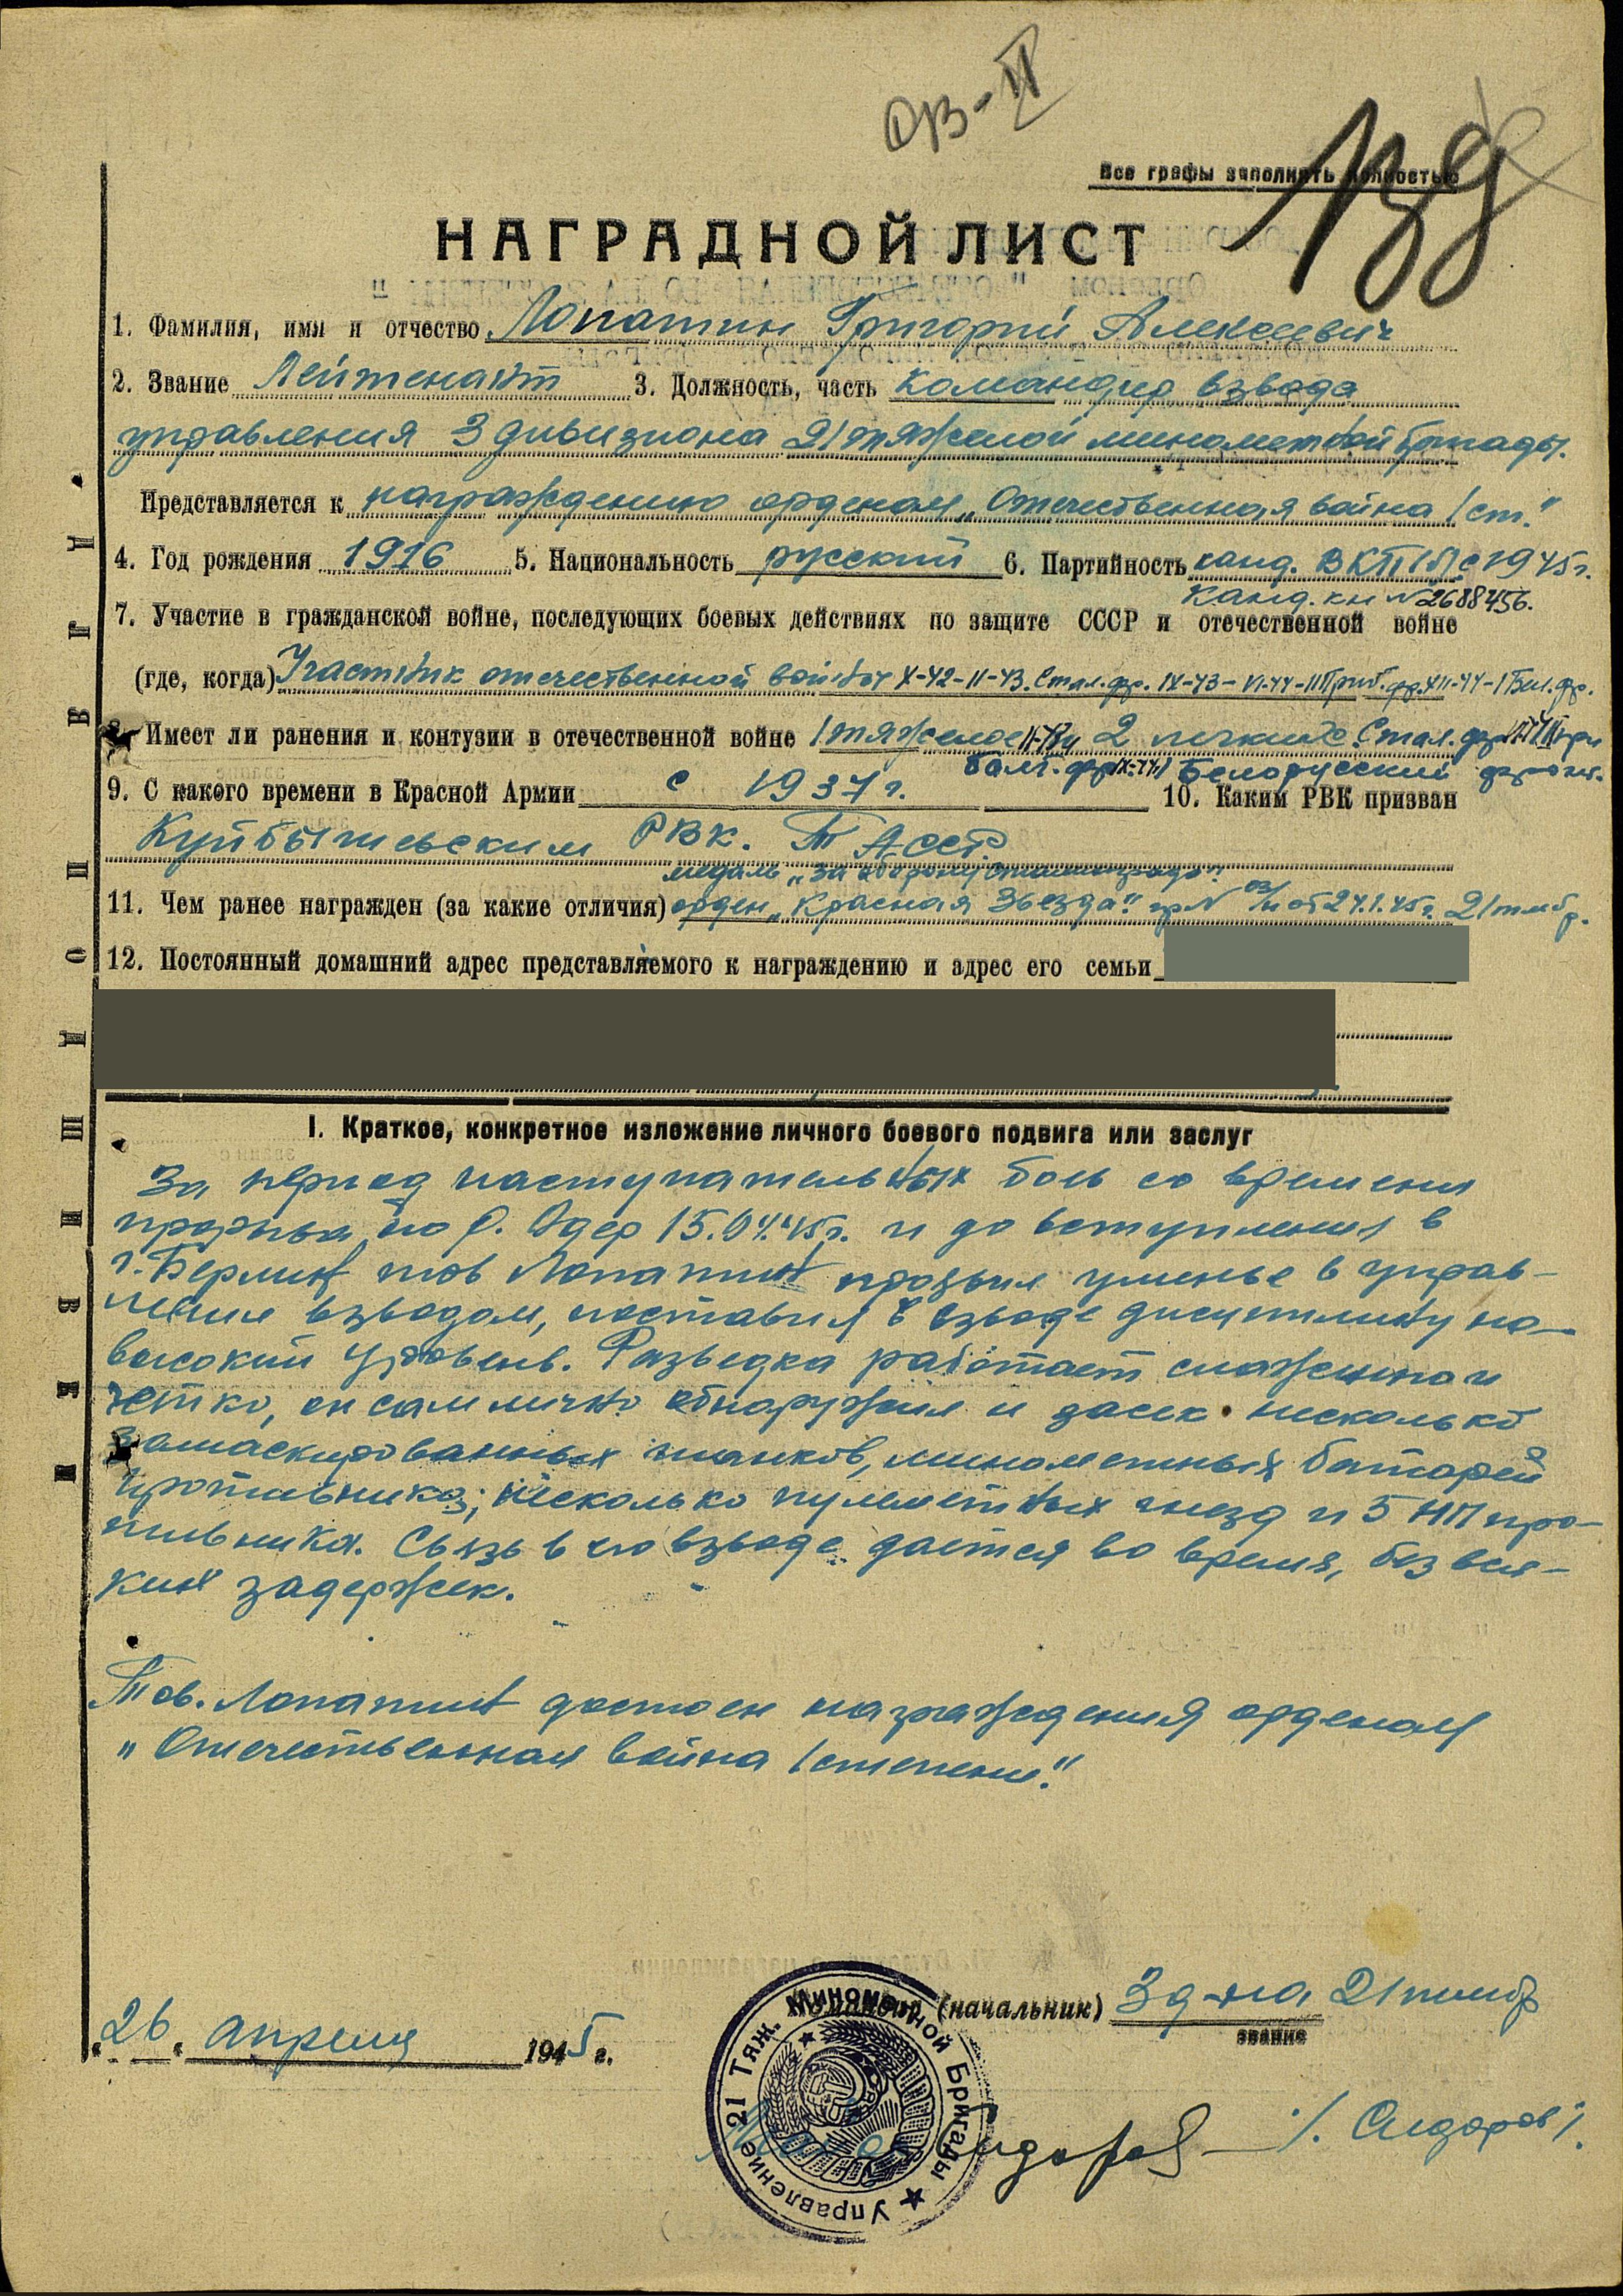 ОВ-II
Все графы заполнять полностью
НАГРАДНОЙ ЛИСТ
1. Фамилия, имя и отчество Лопатин Григорий Алексеевич
2. Звание Лейтенант 3. Должность, часть командир взвода
управления 3 дивизиона 21 тяжелой минометной бригады.
Представляется к награждению орденом „Отечественная война 1 ст."
4. Год рождения 1916 5. Национальность русский 6. Партийность канд. ВКП(б) с 1945 г.
Канд. кн № 2688456.
7. Участие в гражданской войне, последующих боевых действиях по защите СССР и отечественной войне
(где, когда) Участник отечественной войны X-42-II-43. Стал. фр. IX-43-VI-44-II Приб. фр. XII-44-I Бел. фр.
8. Имеет ли ранения и контузии в отечественной войне 1 тяжелое и 2 легких. Стал. фр.
Балт. фр. Белорусский фронт.
9. С какого времени в Красной Армии с 1937 г. 10. Каким РВК призван
Куйбышевским РВК. ТАССР.
медаль „За оборону Сталинграда"
11. Чем ранее награжден (за какие отличия) орден „Красная Звезда" пр № 03/н от 24.1.45 г. 21 тмбр.
12. Постоянный домашний адрес представляемого к награждению и адрес его семьи
I. Краткое, конкретное изложение личного боевого подвига или заслуг
За период наступательных боев со времени
прорыва по р. Одер 15.04.45 г. и до вступления в
г. Берлин тов Лопатин проявил уменье в управ-
лении взводом, поставил в взводе дисциплину на
высокий уровень. Разведка работает слаженно и
четко, он сам лично обнаружил и засек несколько
замаскированных танков, минометных батарей
противника; несколько пулеметных гнезд и 5 НП про-
тивника. Связь в его взводе дается во время, без вся-
ких задержек.
Тов. Лопатин достоин награждения орденом
„Отечественная война 1 степени".
Командир (начальник) 3 д-на 21 тмбр
звание
„26" апреля 1945 г.
Управление 21 Тяж. Минометной Бригады
Сидоров /. Сидоров /.